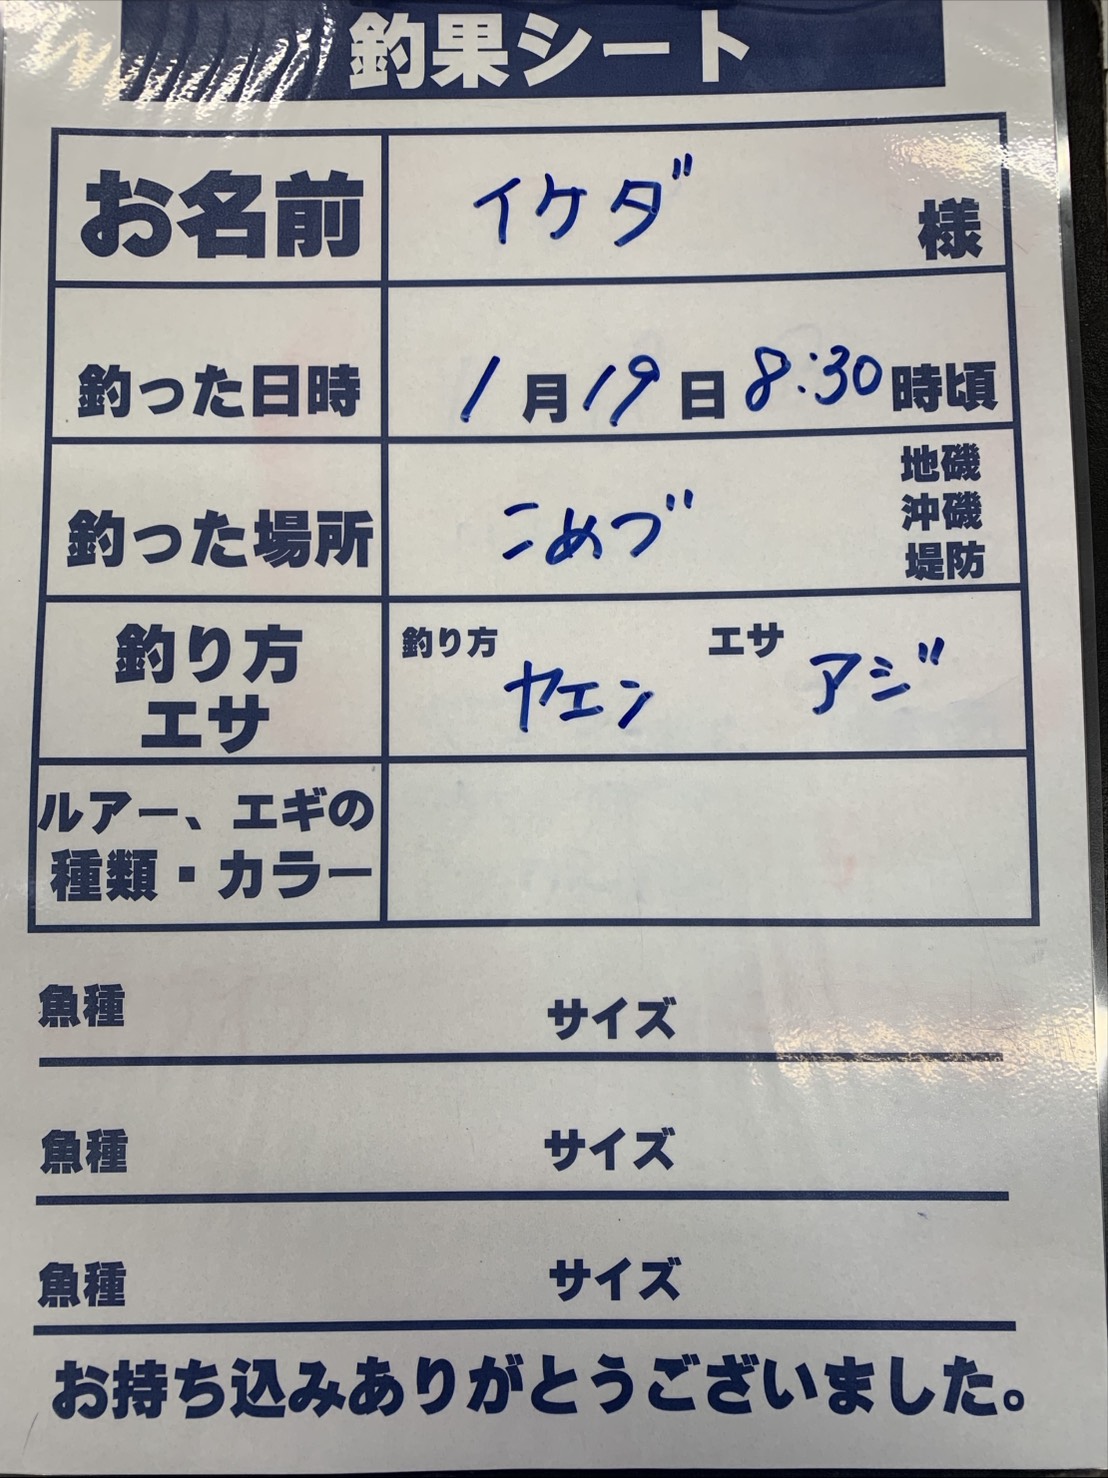 釣果シート
お名前 イケダ 様
釣った日時 1月19日 8:30時頃
釣った場所 こめづ 地磯 沖磯 堤防
釣り方 エサ 釣り方 ヤエン エサ アジ
ルアー、エギの
種類・カラー
魚種 サイズ
魚種 サイズ
魚種 サイズ
お持ち込みありがとうございました。